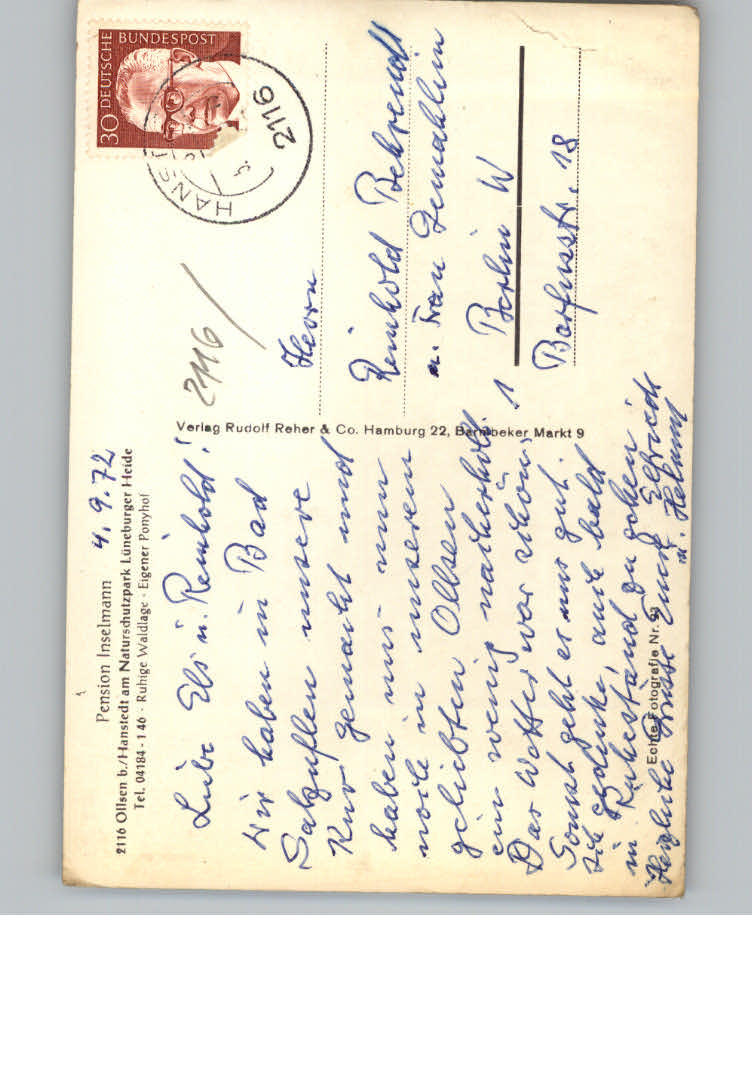 Pension Inselmann
2116 Ollsen b./Hanstedt am Naturschutzpark Lüneburger Heide
Tel. 04184 - 1 46 · Ruhige Waldlage · Eigener Ponyhof
4.9.72
Liebe Els u. Reinhold!
Wir haben in Bad
Salzuflen unsere
Kur gemacht und
haben uns nun
noch in unserem
geliebten Ollsen
ein wenig nacherholt.
Das Wetter war schön!
Sonst geht es uns gut.
Ich gedenke, auch bald
in Ruhestand zu gehen
Herzliche Grüsse Eure Elfriede
u. Helmut
Echte Fotografie Nr. 93
Verlag Rudolf Reher & Co. Hamburg 22, Barmbeker Markt 9
2116
30 DEUTSCHE BUNDESPOST
HANST
2116
Herrn
Reinhold Behrendt
u. Frau Gemahlin
1 Berlin W
Barfusstr. 18